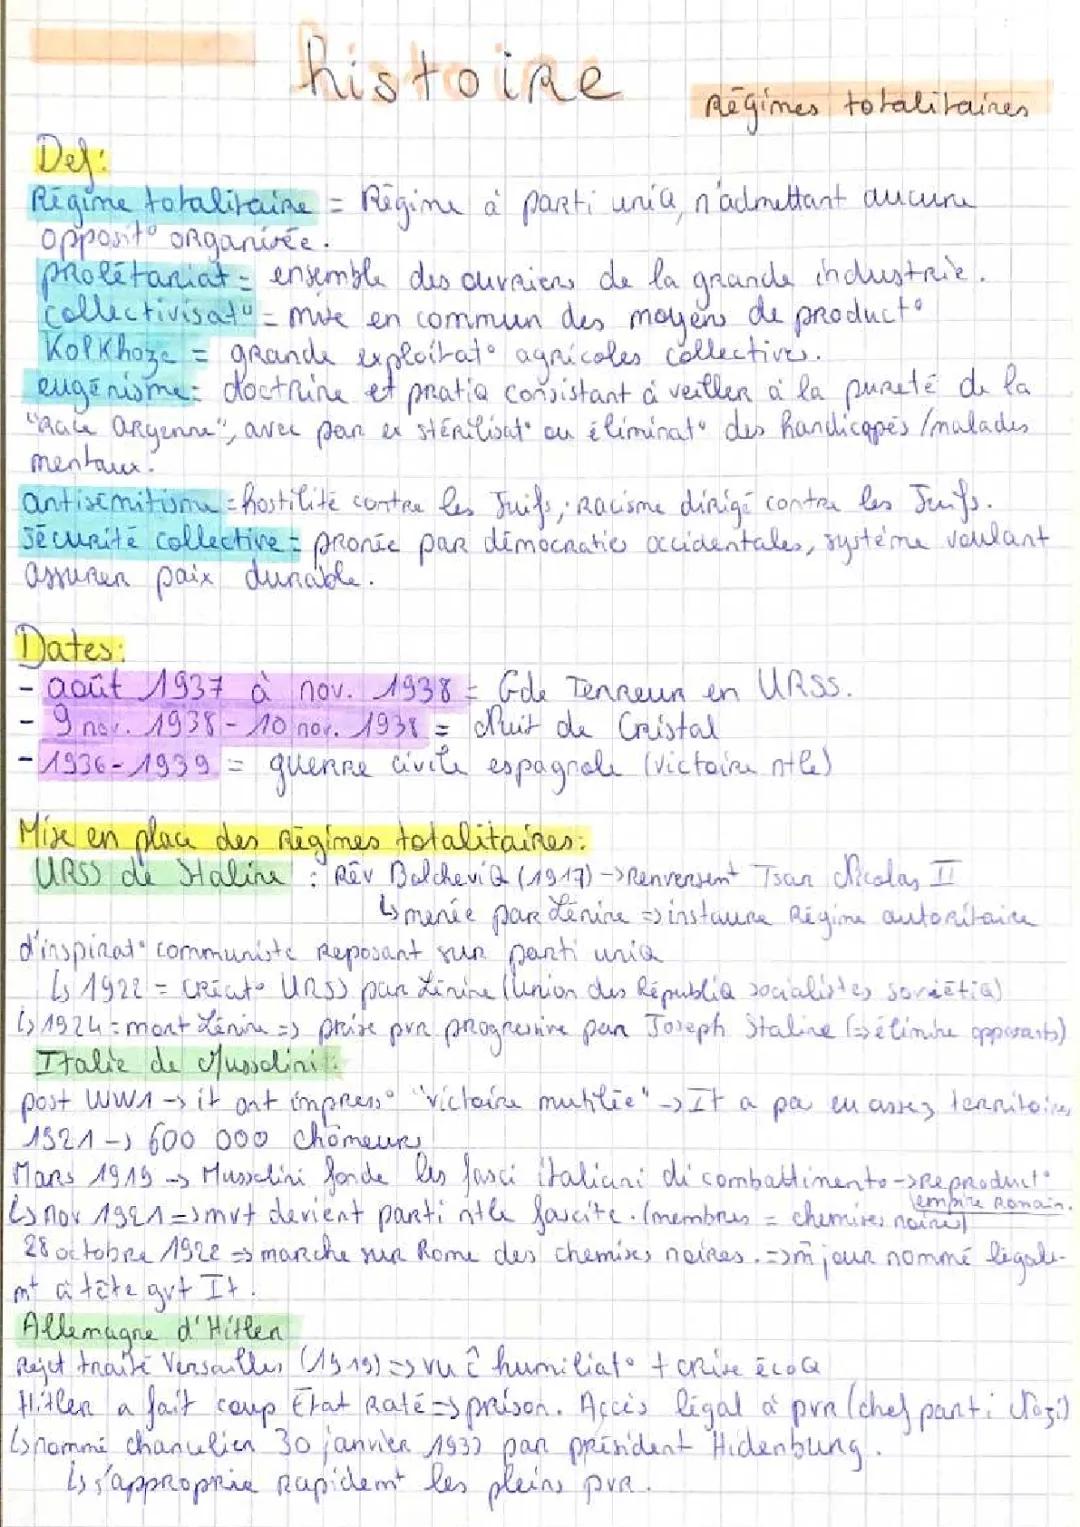 histoire
Régimes totalitaires
Def:
Régime totalitaire = Régime à parti uniQ, n'admettant aucune
opposit° organisée.
prolétariat = ensemble des ouvriers de la grande industrie.
collectivisat° = mise en commun des moyens de product°
Kolkhoze = grande exploitat° agricoles collectives.
eugénisme = doctrine et pratiQ consistant à veiller à la pureté de la
"Race Aryenne", avec par ex stérilisat° ou éliminat° des handicapés/malades
mentaux.
antisémitisme = hostilité contre les Juifs, racisme dirigé contre les Juifs.
sécurité collective = pronée par démocraties occidentales, système voulant
assurer paix durable.
Dates:
- août 1937 à nov. 1938 = Gde Terreur en URSS.
- 9 nov. 1938 - 10 nov. 1938 = Nuit de Cristal
- 1936-1939 = guerre civile espagnole (victoire ntle)
Mise en place des régimes totalitaires:
URSS de Staline : Rév BolcheviQ (1917) -> Renversent Tsar Nicolas II
↳ menée par Lénine => instaure Régime autoritaire
d'inspirat° communiste reposant sur parti uniQ
↳ 1922 = créat° URSS par Lénine (Union des RépubliQ socialistes soviétiQ)
↳ 1924 = mort Lénine => prise pvr progressive par Joseph Staline (=> élimine opposants)
Italie de Mussolini:
post WW1 -> it ont impress° "victoire mutilée" -> It a pa eu assez territoires
1921 -> 600 000 chômeurs
Mars 1919 -> Mussolini fonde les fasci italiani di combattimento -> Reproduct°
empire Romain.
↳ Nov 1921 => mvt devient parti ntle fasciste. (membres = chemises noires)
28 octobre 1922 => marche sur Rome des chemises noires. => m̂ jour nommé légale-
mt à tête gvt It.
Allemagne d'Hitler
Rejet traité Versailles (1919) => vu ĉ humiliat° + crise écoQ
Hitler a fait coup État Raté => prison. Accès légal à pvr (chef parti Nazi)
↳ nommé chancelier 30 janvier 1933 par président Hidenburg.
↳ s'approprie rapidemt les pleins pvr.